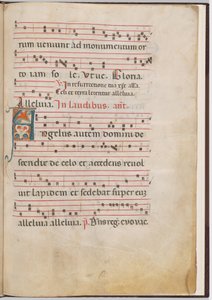 rum veniunt ad monumentum or
to iam so le. V̄tuc. Gloria.
In resurrectione tua xp̄e alla.
Celi et terra letentur alleluia.
Alleluia. In laudibus. añt.
Angelus autem domini de
scendit de celo et accedens revol
vit lapidem et sedebat super eū
alleluia alleluia. p̄. Dn̄s reg. evovae.